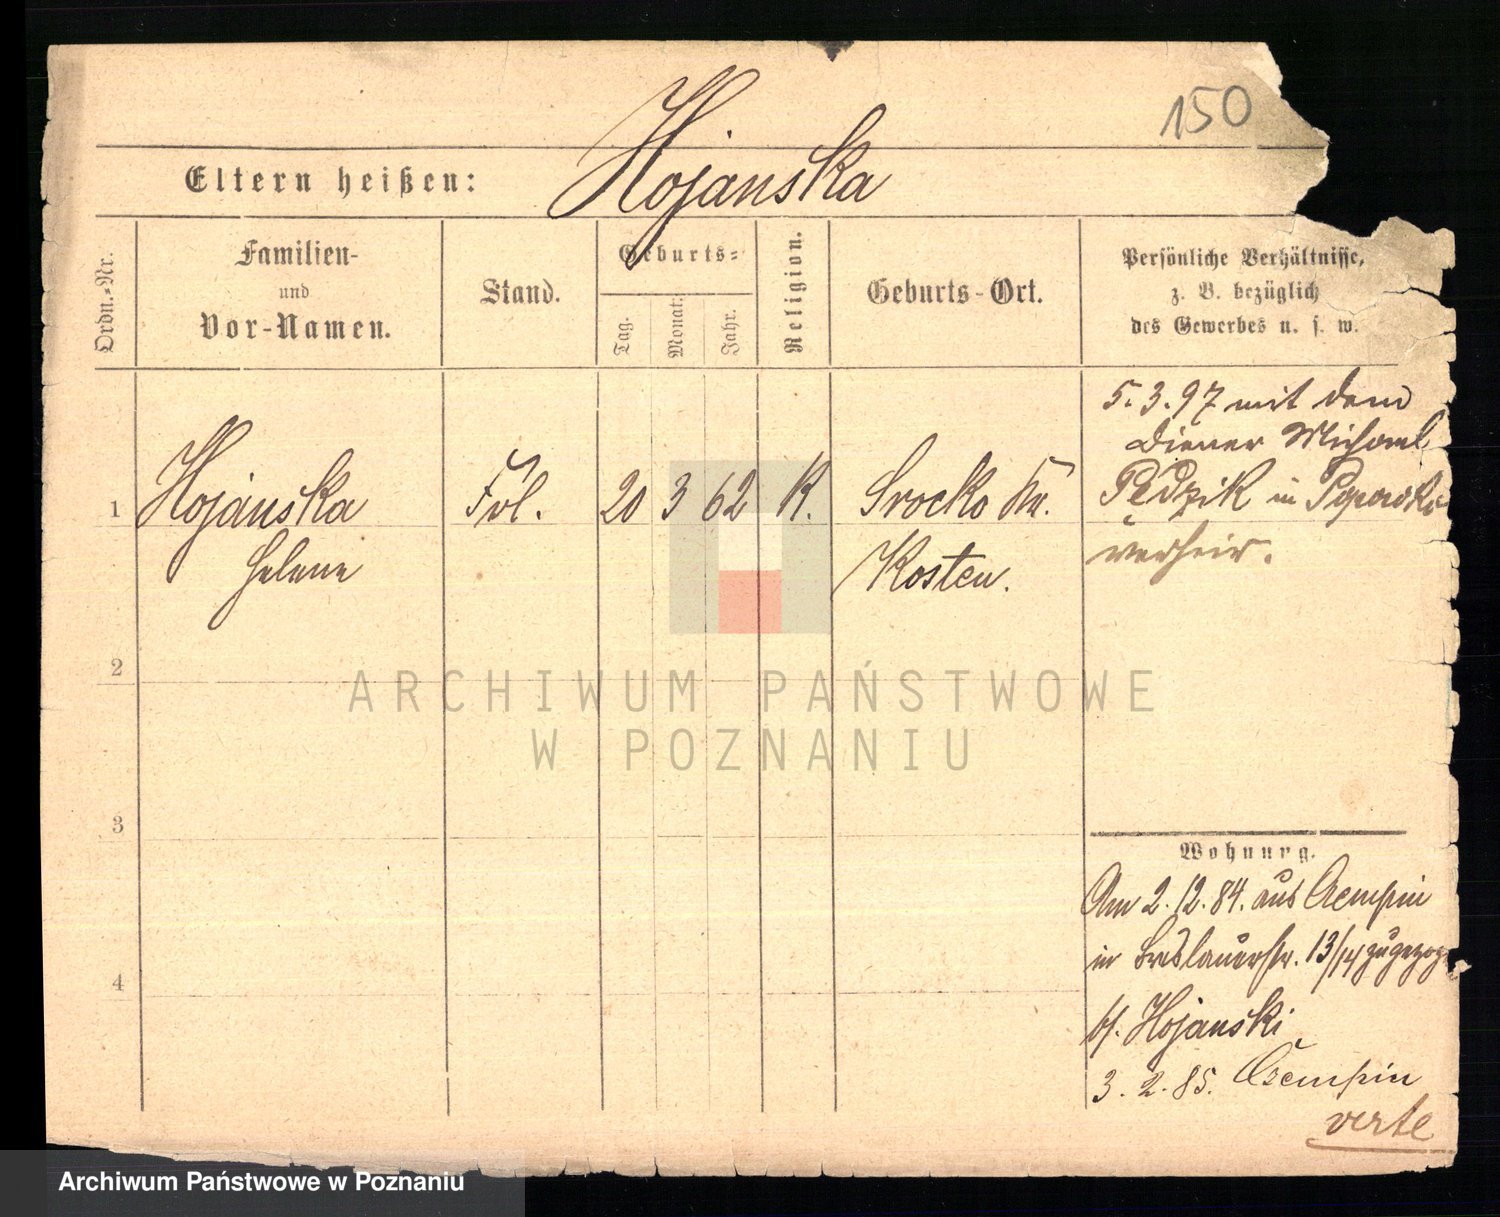 150
Hojanska
Eltern heißen:
Ordn.-Nr.
Familien-
und
Vor-Namen.
Stand.
Geburts-
Tag.
Monat.
Jahr.
Religion.
Geburts-Ort.
Persönliche Verhältnisse,
z. B. bezüglich
des Gewerbes u. s. w.
5.3.97 mit dem
Diener Michael
1 Hojanska Frl. 20 3 62 K. Srocko Kr.
in
verheir.
Helene
Kosten.
2
ARCHIWUM PAŃSTWOWE
W POZNANIU
3
Wohnung.
Am 2.12.84. aus Czempin
in Breslauerstr. 13/14 zugezog
4
bei Hojanski
3.2.85. Czempin
verte
Archiwum Państwowe w Poznaniu